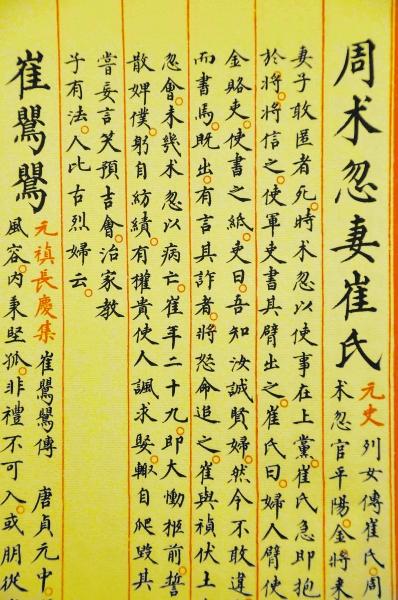 周术忽妻崔氏 元史 列女傳崔氏周
术忽官平陽。金將來
妻子敢匿者死。時术忽以使事在上黨。崔氏急即抱
於將。將信之。使軍吏書其臂出之。崔氏曰。婦人臂使
金賂吏。使書之紙。吏曰。吾知汝誠賢婦。然今不敢違
而書焉。既出。有言其詐者。將怒命追之。崔與禎伏土
忍會。未幾术忽以病亡。崔年二十九。即大慟柩前。誓
散婢僕。躬自紡績。有權貴使人諷求娶。輒自爬毀其
嘗妄言笑。預吉會。治家教
子有法。人比古烈婦云。
崔鶯鶯 元禎長慶集 崔鶯鶯傳 唐貞元中
風容。內秉堅孤。非禮不可入。或朋從